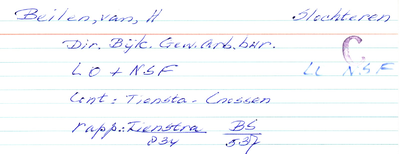 Beilen, van, H Slochteren
Dir. Bijk. Gew. Arb. bur.
LO + NSF LL NSF
Cont: Tiensta - Cnossen
rapp: Tienstra BS
834 537